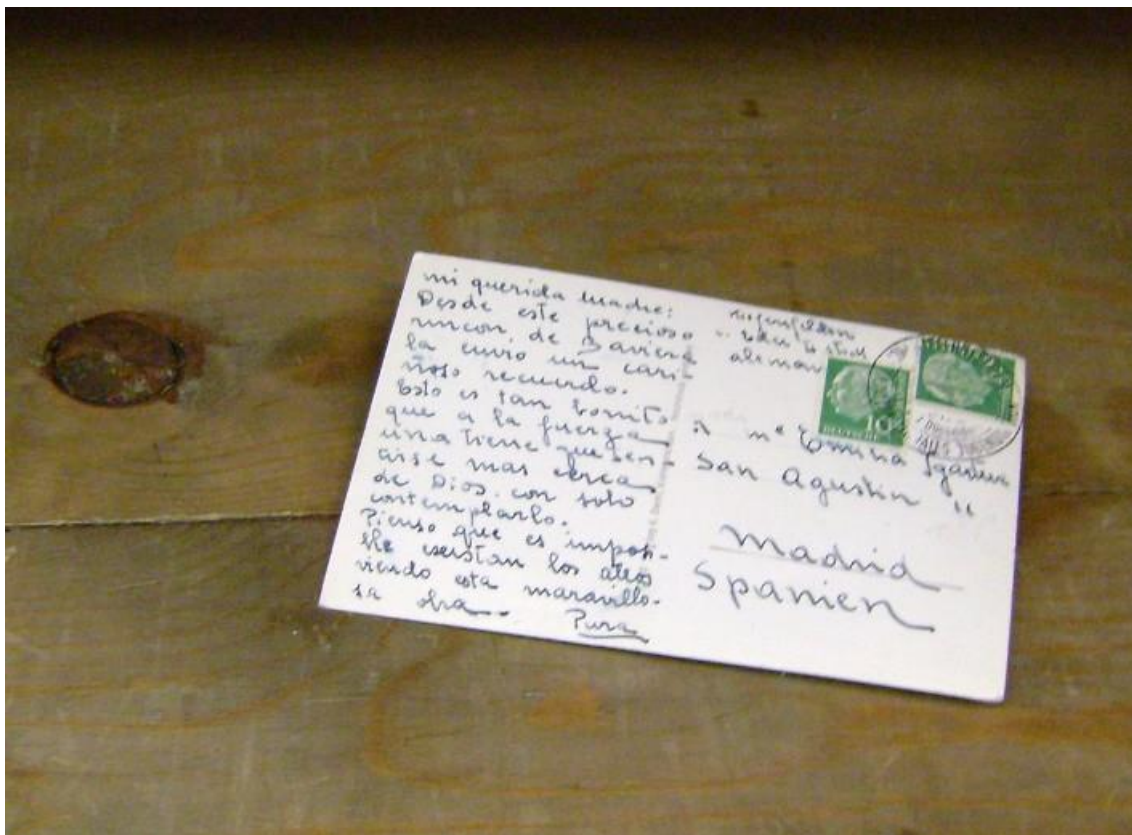 mi querida madre:
Desde este precioso
rincon de Baviera
la envio un cari-
ñoso recuerdo.
Esto es tan bonito
que a la fuerza
una tiene que sen-
tirse mas cerca
de Dios con solo
contemplarlo.
Pienso que es imposi-
ble existan los ateos
viendo esta maravillo-
sa obra.
Pura
10
DEUTSCHE
San Agustin 11
Madrid
Spanien